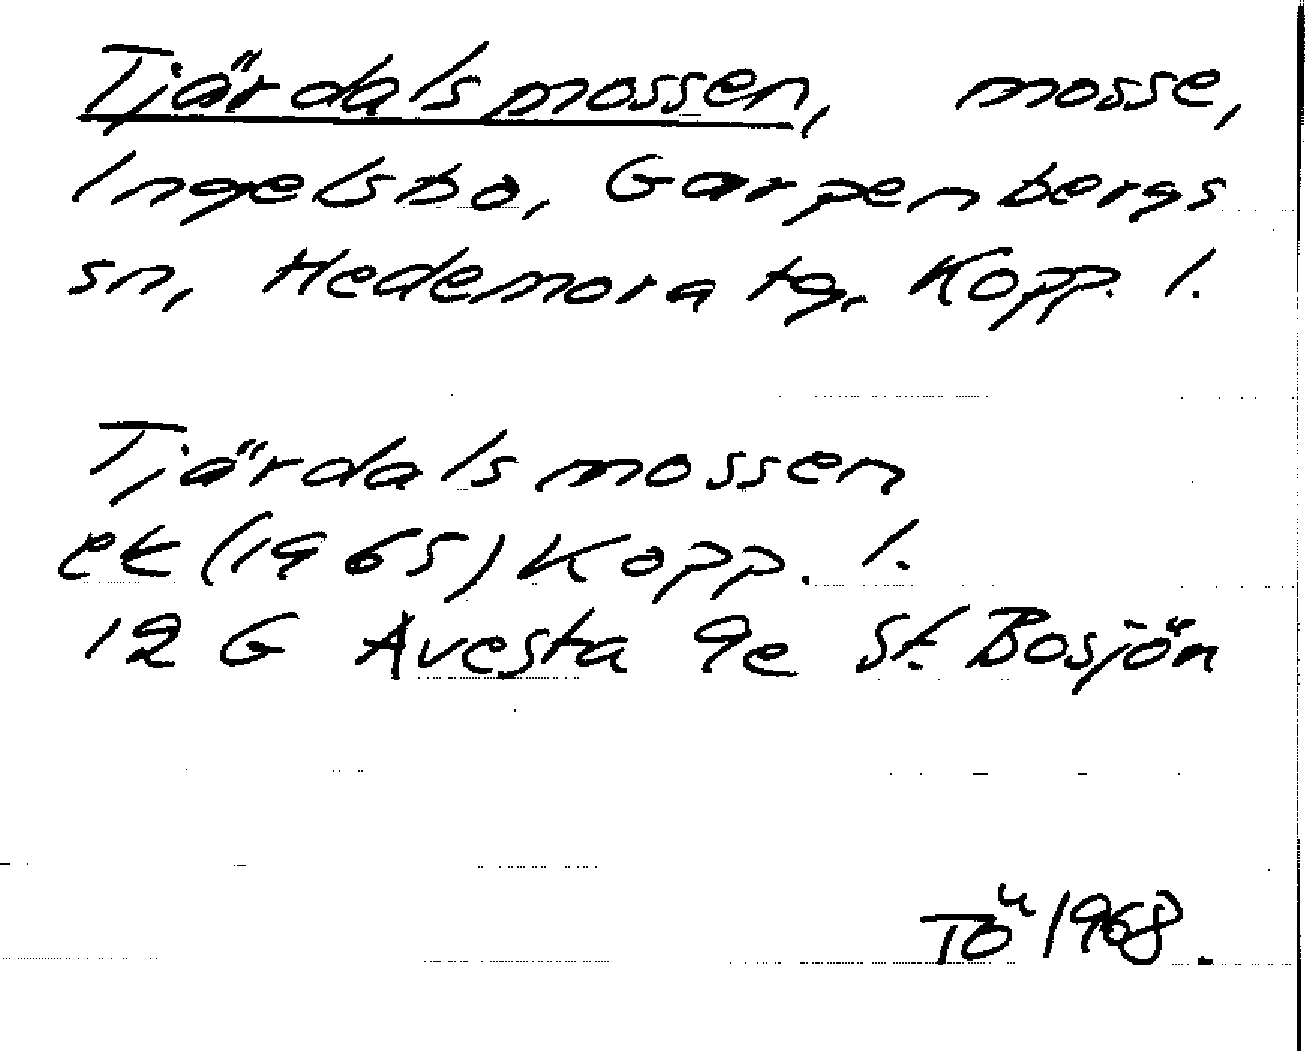 Tjärdalsmossen, mosse,
Ingelsbo, Garpenbergs
sn, Hedemora tg. Kopp. l.
Tjärdalsmossen
ek (1965) Kopp. l.
12 G Avesta 9e St. Bosjön
TÖ 1968.